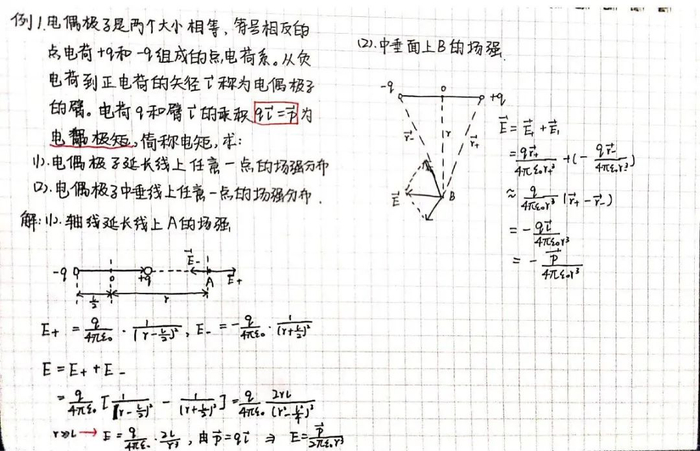 例1.电偶极子是两个大小相等,符号相反的
点电荷+q和-q组成的点电荷系。从负
电荷到正电荷的矢径l⃗称为电偶极子
的臂。电荷q和臂l⃗的乘积 ql⃗=p⃗ 为
电偶极矩,简称电矩,求:
(1).电偶极子延长线上任意一点的场强分布
(2).电偶极子中垂线上任意一点的场强分布.
解:(1).轴线延长线上A的场强
-q o +q E⃗₋ A E⃗₊
l/2 r
E₊ = q/4πε₀ · 1/(r-l/2)², E₋ = -q/4πε₀ · 1/(r+l/2)²
E = E₊ + E₋
= q/4πε₀ [1/(r-l/2)² - 1/(r+l/2)²] = q/4πε₀ · 2rl/(r²-l²/4)²
r≫l → E = q/4πε₀ · 2l/r³, 由p⃗=ql⃗ ⇒ E⃗= p⃗/2πε₀r³
(2).中垂面上B的场强.
-q o +q
r⃗₋ r r⃗₊
E⃗ B
E⃗ = E⃗₊ + E⃗₋
= qr⃗₊/4πε₀r₊³ + (- qr⃗₋/4πε₀r₋³)
≈ q/4πε₀r³ (r⃗₊ - r⃗₋)
= - ql⃗/4πε₀r³
= - p⃗/4πε₀r³